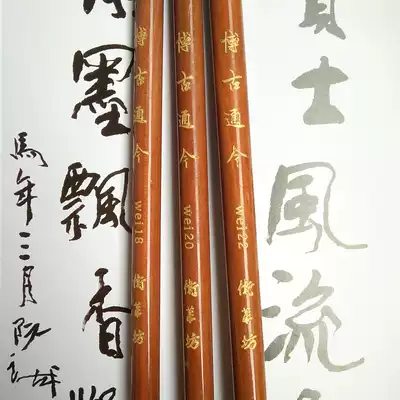 馬年三月
墨飄香
博古通今 wei18 衛筆坊
博古通今 wei20 衛筆坊
博古通今 wei22 衛筆坊
士風流